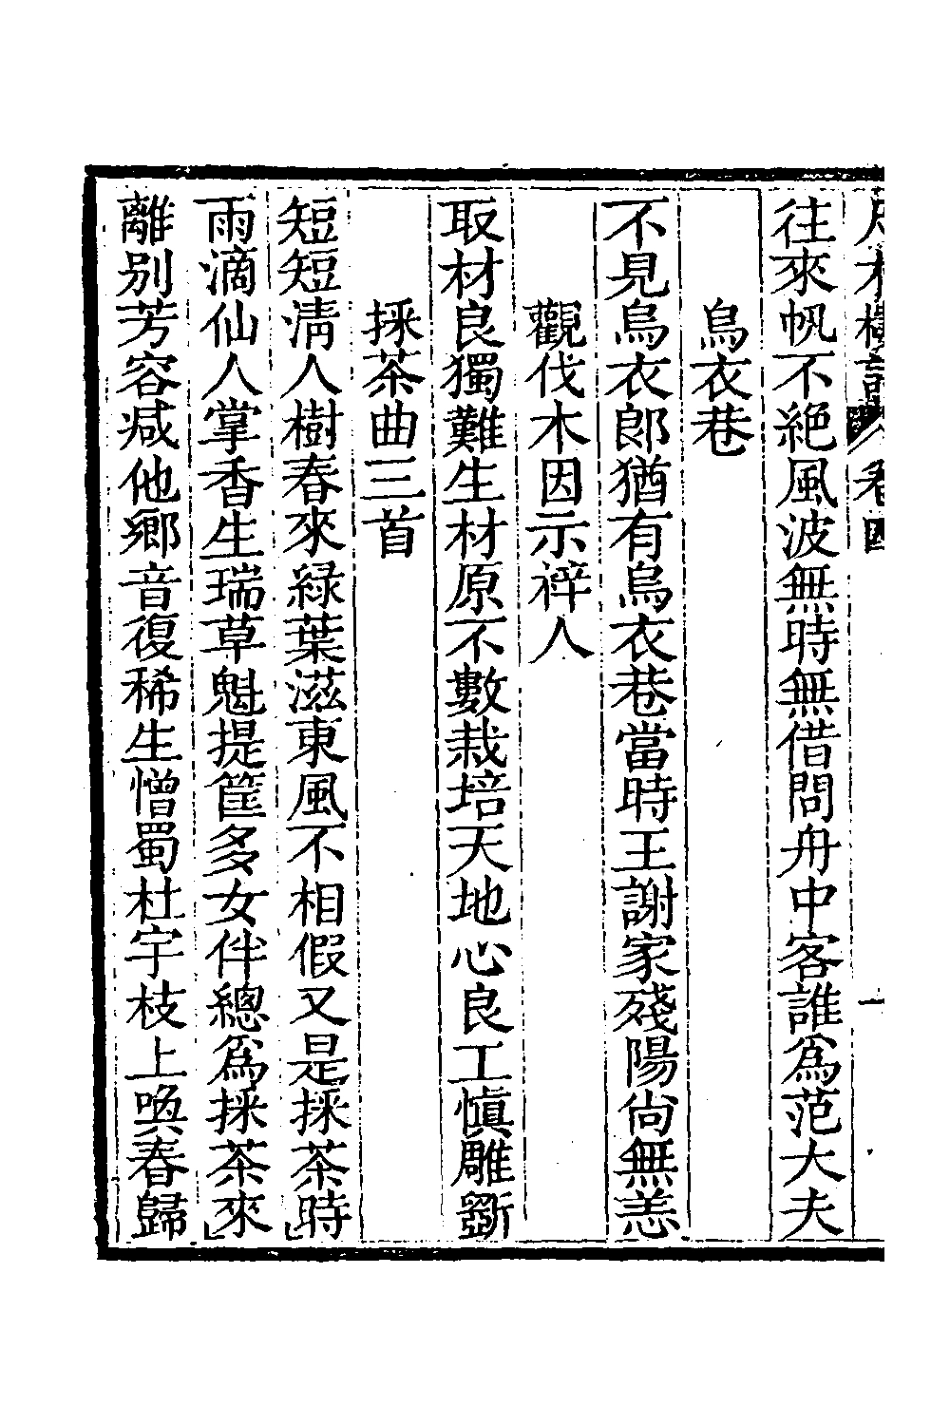 往來帆不絕風波無時無借問舟中客誰爲范大夫
烏衣巷
不見烏衣郎猶有烏衣巷當時王謝家殘陽尚無恙
觀伐木因示梓人
取材良獨難生材原不數栽培天地心良工慎雕斵
採茶曲三首
短短淸人樹春來綠葉滋東風不相假又是採茶時
雨滴仙人掌香生瑞草魁提筐多女伴總爲採茶來
離别芳容减他鄉音復稀生憎蜀杜宇枝上喚春歸